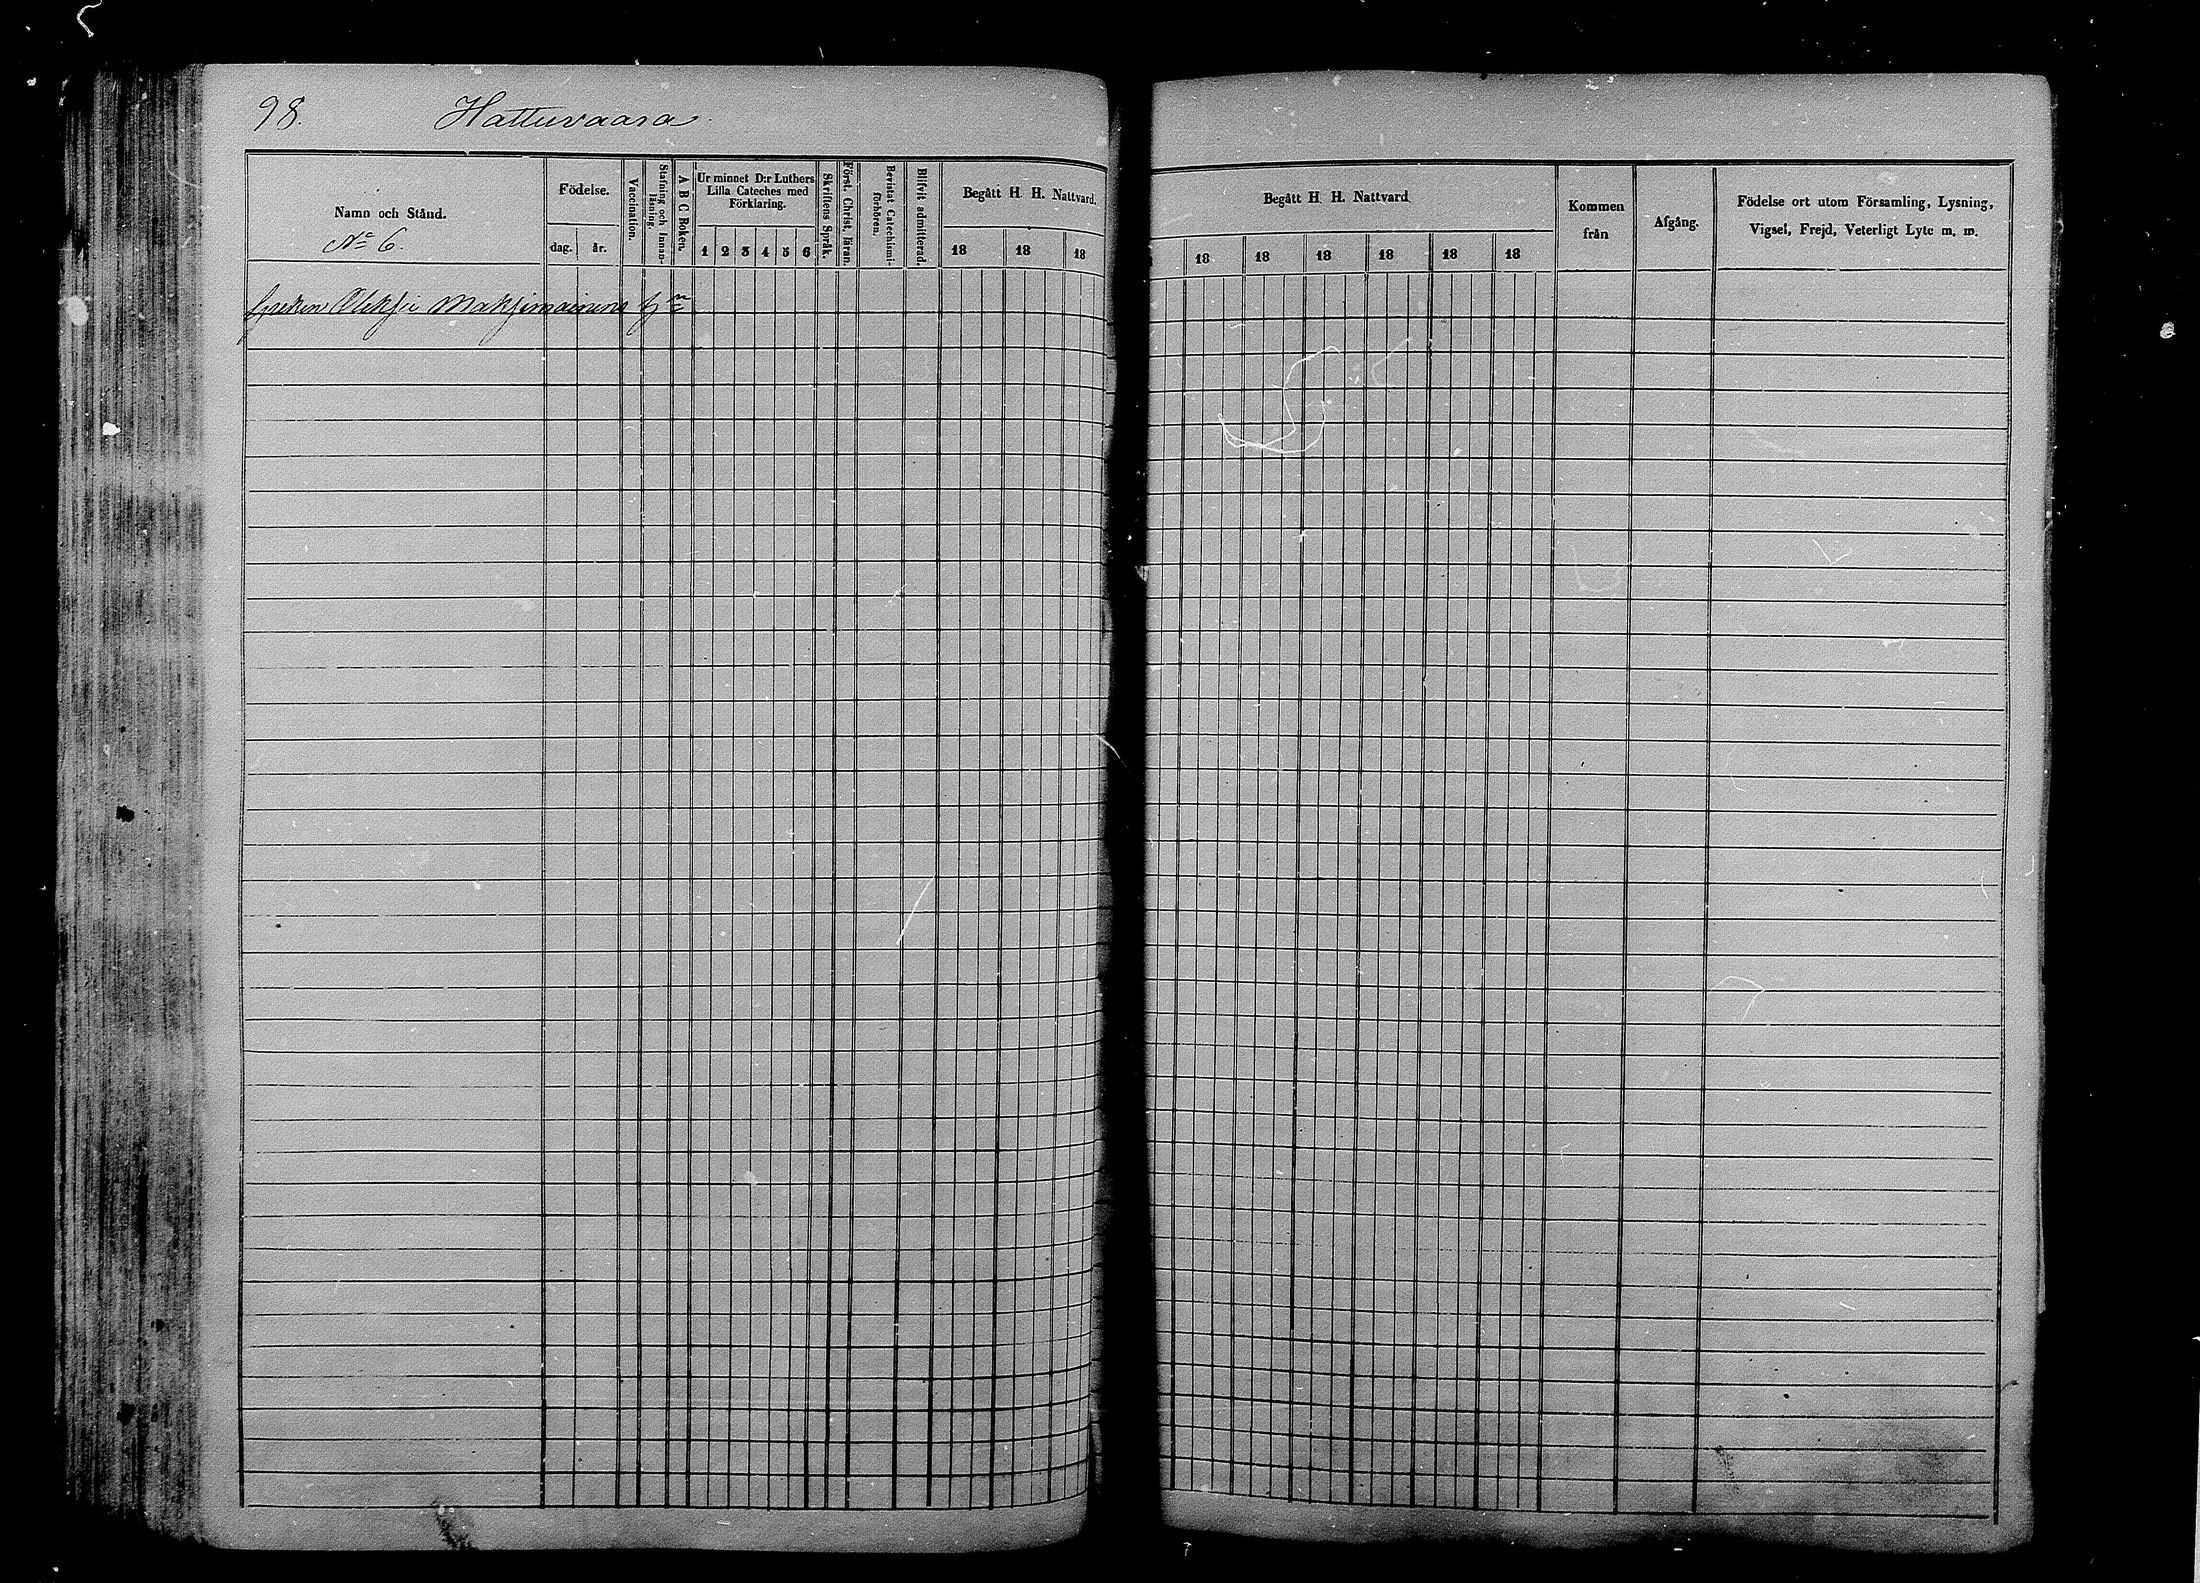 98. Hattuvaara.
Namn och Stånd.
No 6.
Födelse.
dag. år.
Vaccination.
Stafning och Innan-
läsning
A B C Boken.
Ur minnet D:r Luthers
Lilla Cateches med
Förklaring.
1 2 3 4 5 6
Skriftens Språk.
Först. Christ. läran.
Bevistat Catechismi-
förhören.
Blifvit admitterad.
Begått H. H. Nattvard.
18 18 18
Oleksei Maksimainens
Begått H. H. Nattvard.
18 18 18 18 18 18
Kommen
från
Afgång.
Födelse ort utom Församling, Lysning,
Vigsel, Frejd, Veterligt Lyte m. m.